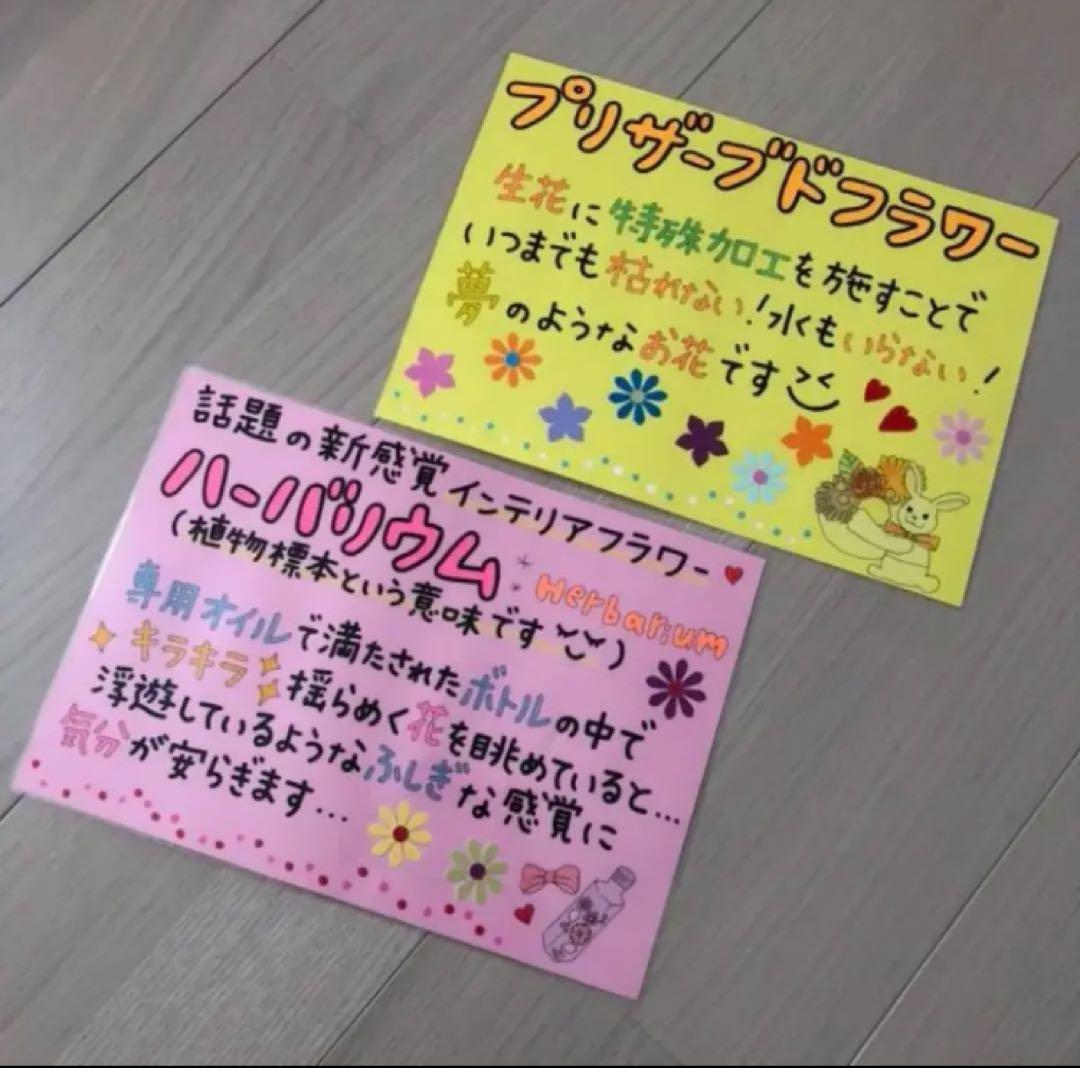 プリザーブドフラワー
生花に特殊加工を施すことで
いつまでも枯れない!水もいらない!
夢のようなお花です
話題の新感覚インテリアフラワー
ハーバリウム
Herbarium
(植物標本という意味です)
専用オイルで満たされたボトルの中で
キラキラ揺らめく花を眺めていると...
浮遊しているようなふしぎな感覚に
気分が安らぎます...